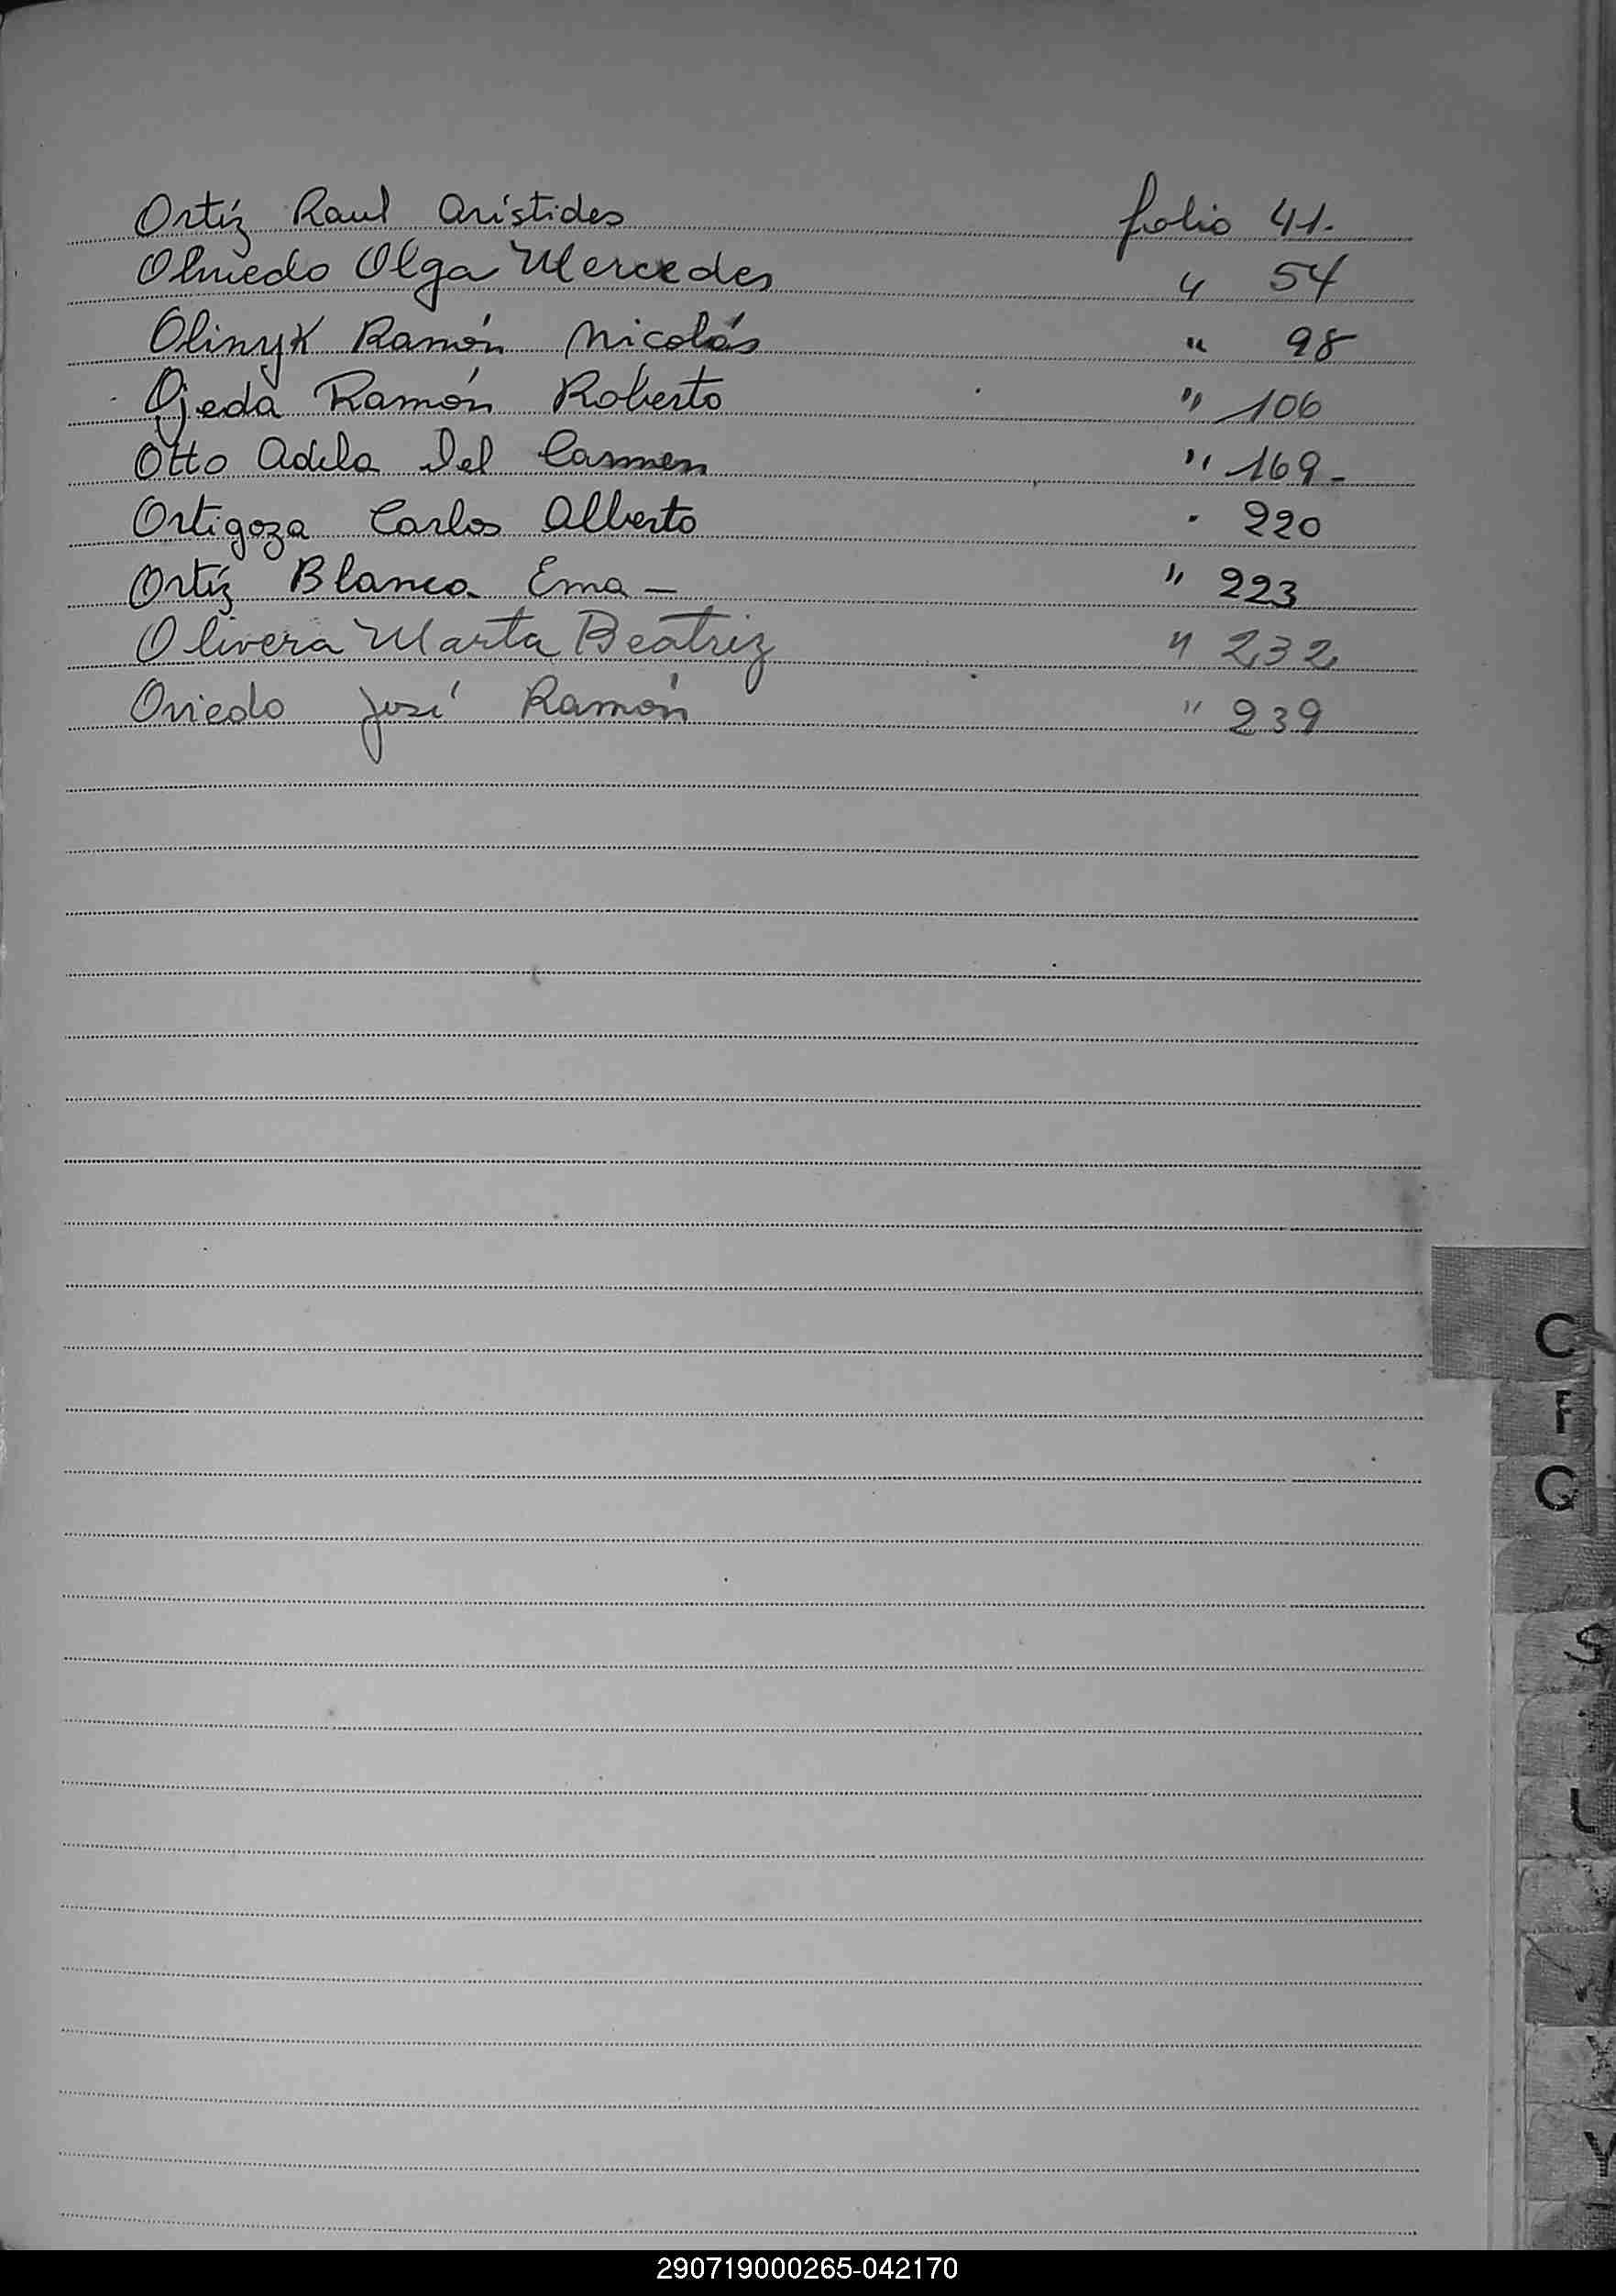 Ortíz Raul Arístides folio 41.
Olmedo Olga Mercedes " 54
Olinyk Ramón Nicolás " 98
Ojeda Ramón Roberto " 106
Otto Adela Del Carmen " 169-
Ortigoza Carlos Alberto " 220
Ortíz Blanca Ema - " 223
Olivera Marta Beatriz " 232
Oviedo José Ramón " 239
C
F
Q
S
Y
290719000265-042170